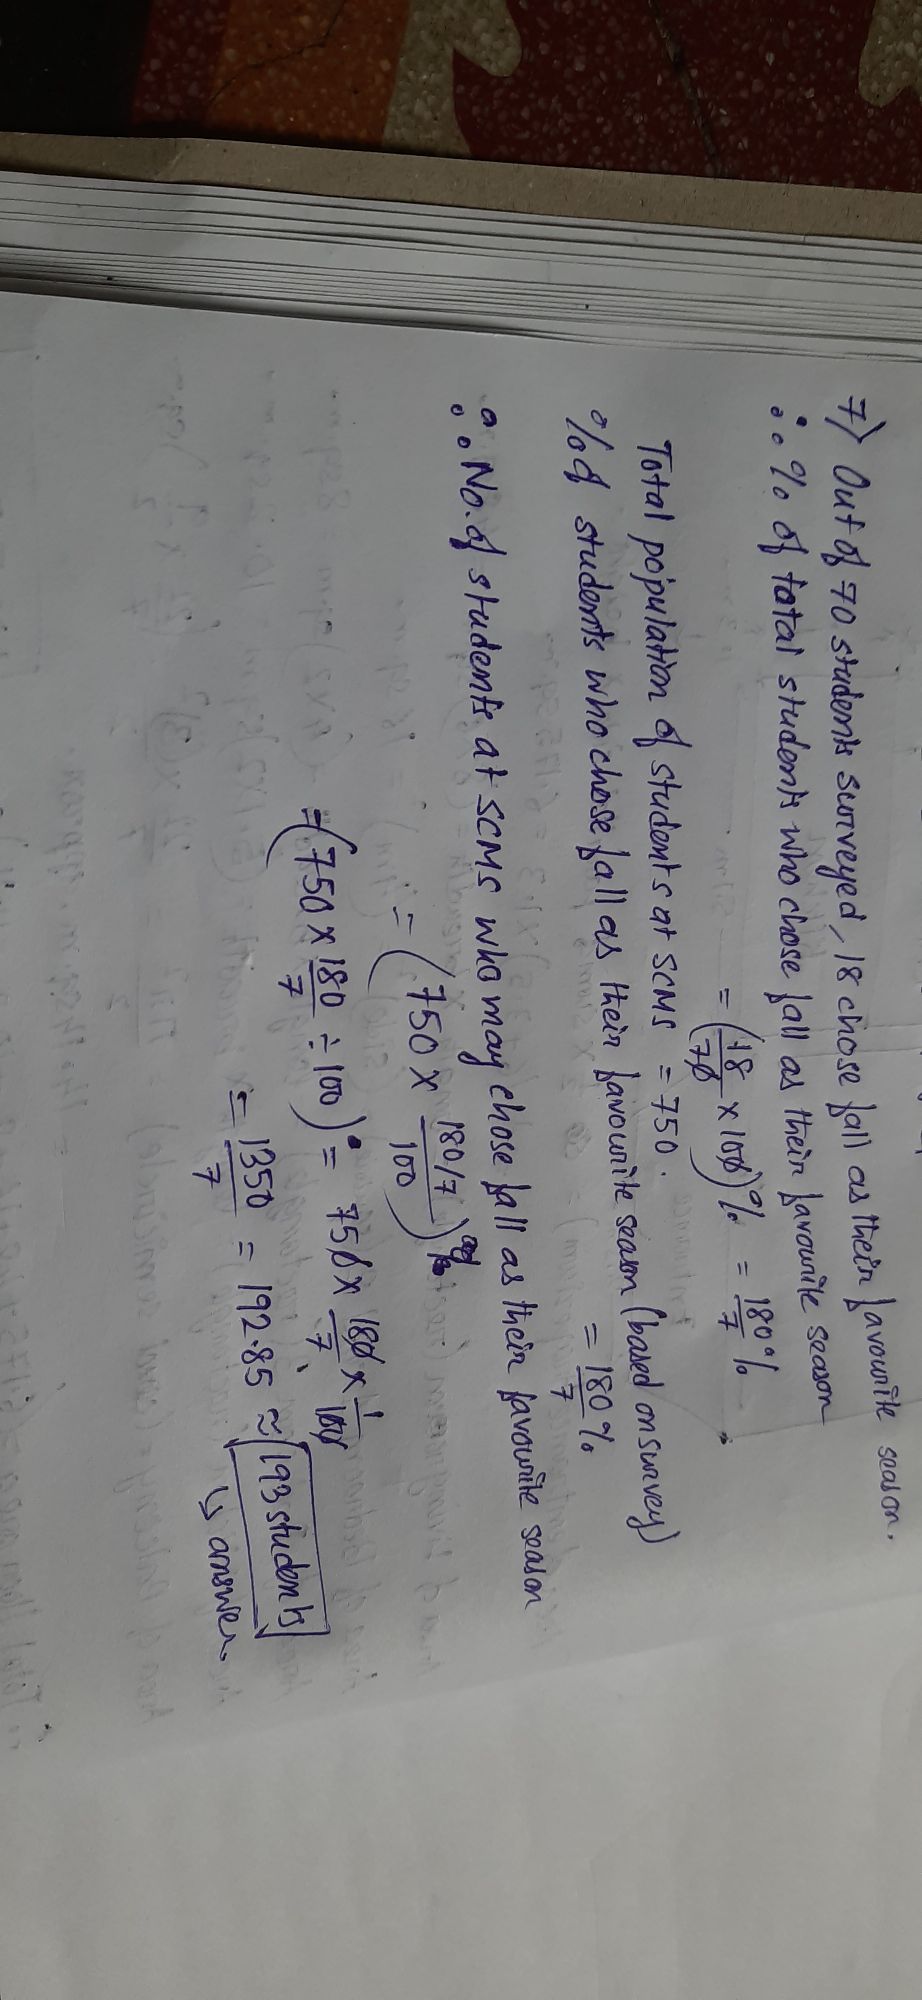 7) Out of 70 students surveyed, 18 chose fall as their favourite season.
∴ % of total students who chose fall as their favourite season
= (18/70 × 100)% = 180/7 %
Total population of students at SCMS = 750.
% of students who chose fall as their favourite season (based on survey)
= 180/7 %
∴ No. of students at SCMS who may chose fall as their favourite season
= (750 × (180/7)/100)
= (750 × 180/7 ÷ 100) = 750 × 180/7 × 1/100
= 1350/7 = 192.85 ≈ 193 students
↳ answer